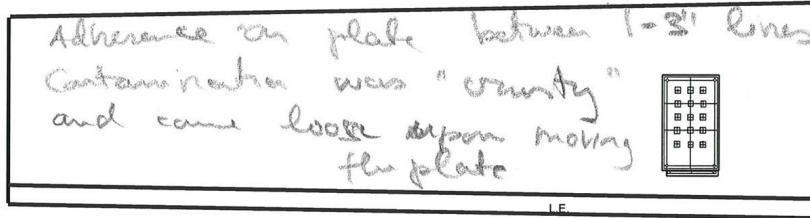 Adherence on plate between 1-3" lines
Contamination was "crusty"
and came loose upon moving
the plate
L.E.